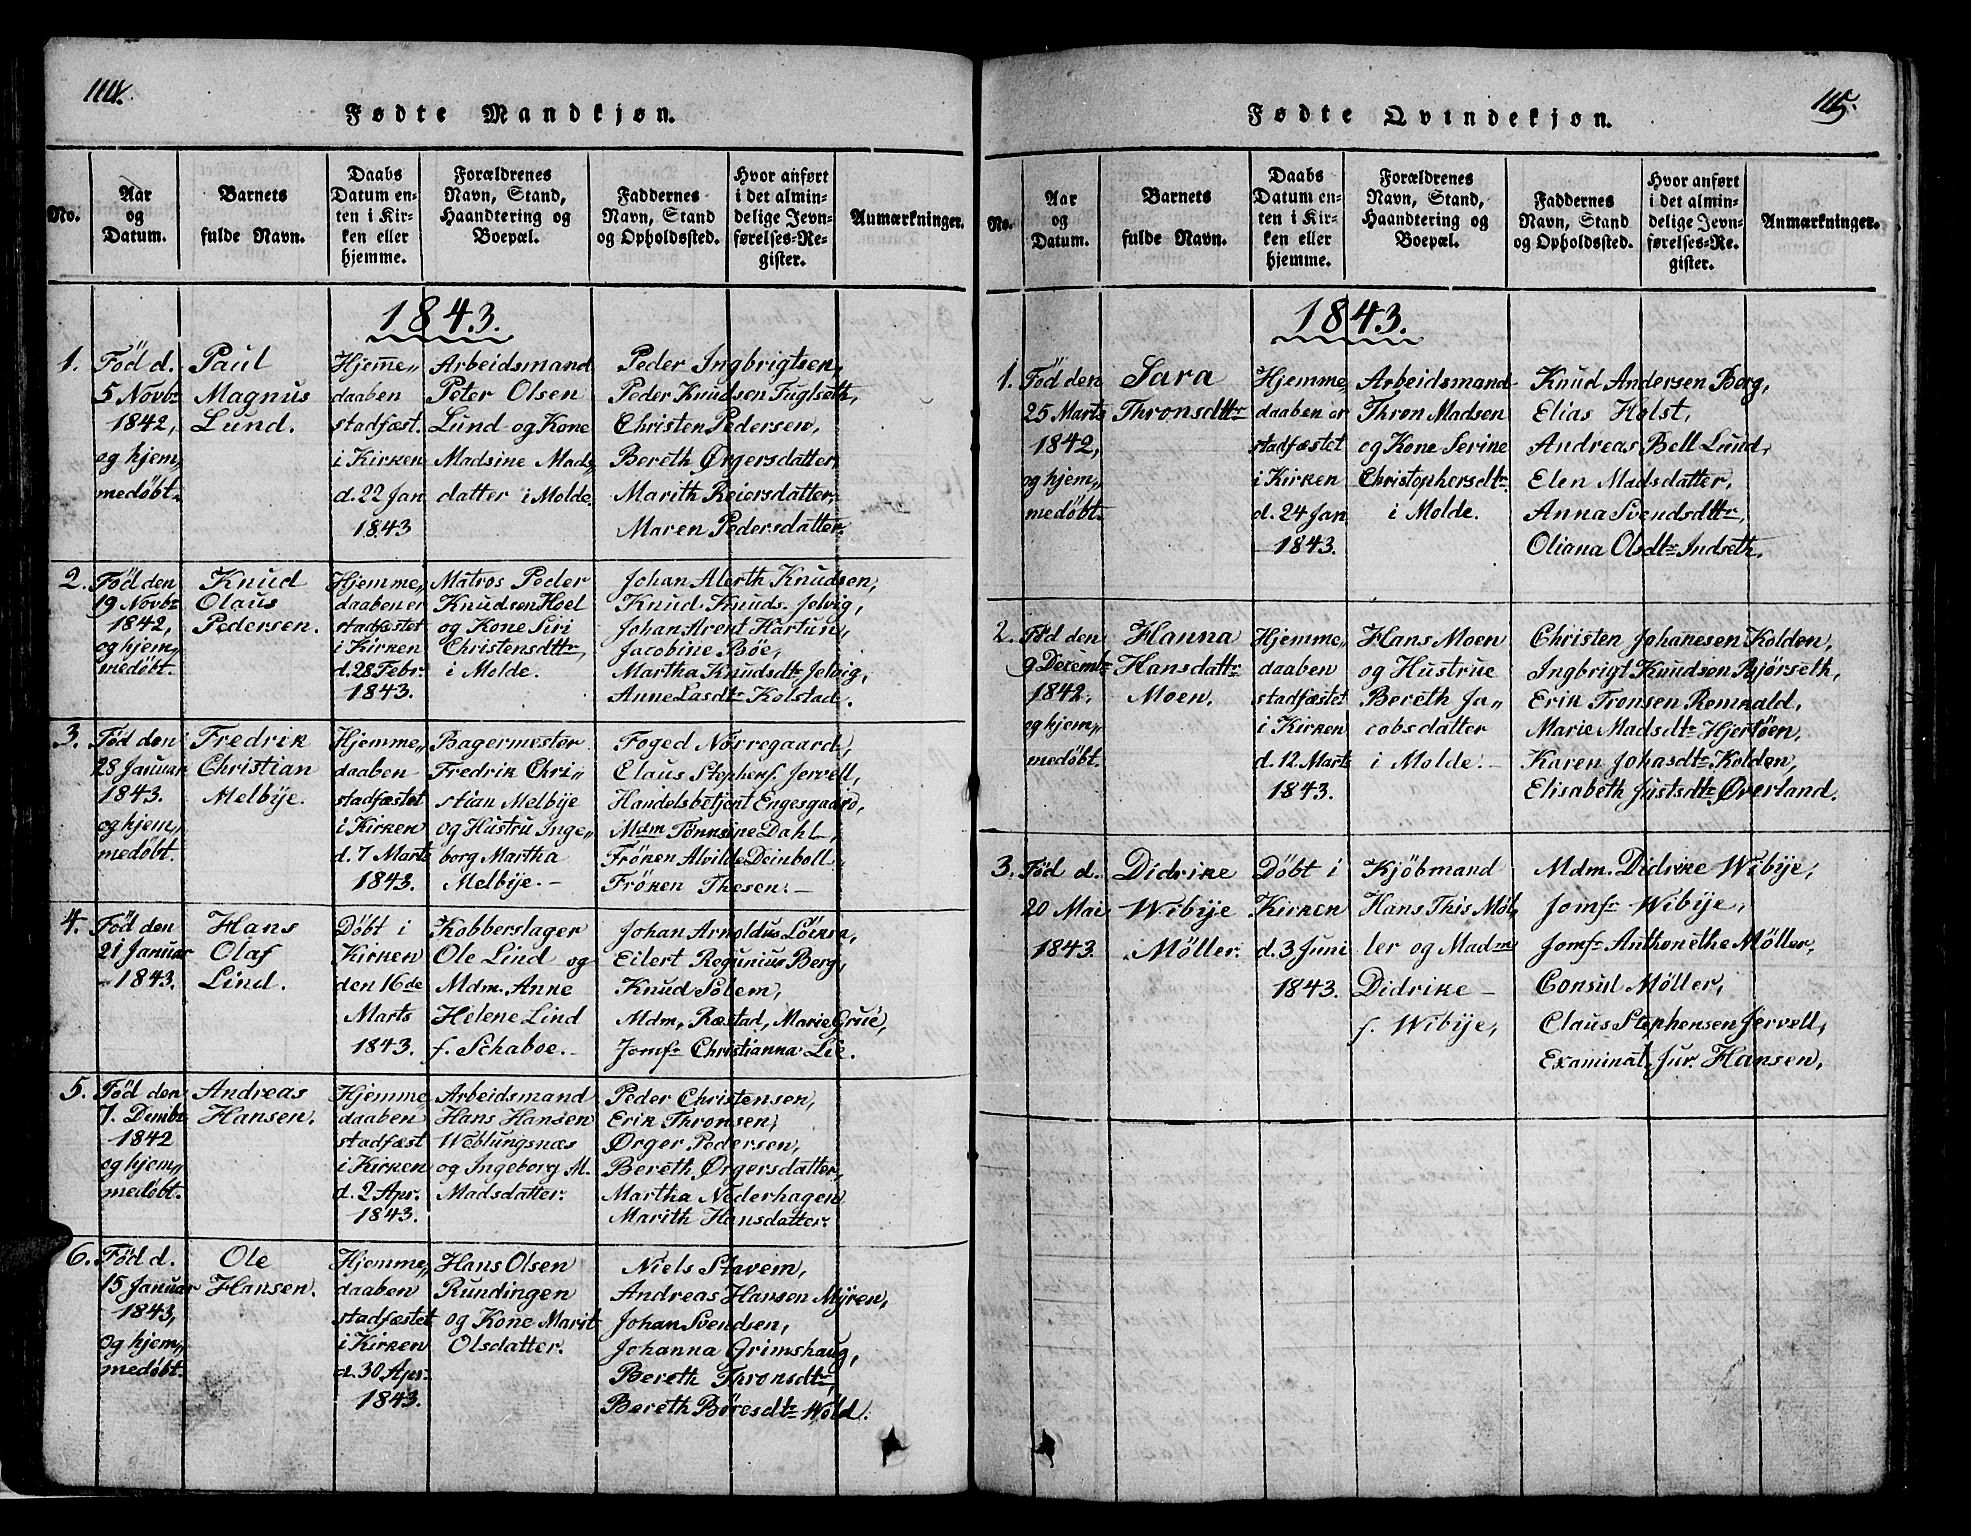 114.
Fødte Mandkjøn.
No.
Aar
og
Datum.
Barnets
fulde Navn.
Daabs
Datum en-
ten i Kir-
ken eller
hjemme.
Forældrenes
Navn, Stand,
Haandtering og
Boepæl.
Faddernes
Navn, Stand
og Opholdssted.
Hvor anført
i det almin-
delige Jevn-
førelses-Re-
gister.
Anmærkninger.
1843.
1.
Fød d.
5 Novbr
1842,
og hjem„
medøbt.
Paul
Magnus
Lund.
Hjemme„
daaben
stadfæst.
i Kirken
d. 22 Jan
1843
Arbeidsmand
Peter Olsen
Lund og Kone
Madsine Mads„
datter i Molde.
Peder Ingbrigtsen,
Peder Knudsen Fuglseth,
Christen Pedersen,
Bereth Ørgersdatter,
Marith Reiersdatter,
Maren Pedersdatter.
2.
Fød den
19 Novbr
1842,
og hjem„
medøbt.
Knud
Olaus
Pedersen.
Hjemme„
daaben er
stadfæstet
i Kirken
d. 28 Febr.
1843.
Matros Peder
Knudsen Hoel
og Kone Siri
Christensdttr,
i Molde.
Johan Alerth Knudsen,
Knud Knuds. Jelvig,
Johan Arent Hartun,
Jacobine Bøe,
Martha Knudsdtr Jelvig,
Anne Lasdtr Kolstad.
3.
Fød den
28 Januar
1843.
og hjem„
medøbt.
Fredrik
Christian
Melbije.
Hjemme„
daaben
stadfæstet
i Kirken
d. 7 Marts
1843.
Bagermester
Fredrik Chri„
stian Melbije
og Hustru Inge„
borg Martha
Melbije. –
Foged Nørregaard,
Claus Stephens. Jervell,
Handelsbetjent Engesgaard,
Mdm Tønnsine Dahl,
Frøken Alvilde Deinboll.
Frøken Thesen. –
4.
Fød den
21 Januar
1843.
Hans
Olaf
Lind.
Døbt i
Kirken
den 16de
Marts
1843.
Kobberslager
Ole Lind og
Mdm. Anne
Helene Lind
f. Schaboe. –
Johan Arnoldus
Eilert Regunius Berg,
Knud Solem,
Mdm, Ræstad, Marie Grue,
Jomfr Christianna Lie.
5.
Fød den
7. Dembr
1842
og hjem„
medøbt.
Andreas
Hansen.
Hjemme
daaben
stadfæst
i Kirken
d. 2 Apr.
1843.
Arbeidsmand
Hans Hansen
Weblungsnæs
og Ingeborg M.
Madsdatter.
Peder Christensen,
Erik Thronsen,
Ørger Pedersen,
Bereth Ørgersdatter,
Martha Nederhagen
Marith Hansdatter.
6.
Fød d.
15 Januar
1843,
og hjem„
medøbt.
Ole
Hansen.
Hjemme„
daaben
stadfæstet
i Kirken
d. 30 Apr.
1843.
Hans Olsen
Rundingen
og Kone Marit
Olsdatter.
Niels Stavem,
Andreas Hansen Myren,
Johan Svendsen,
Johanna Grimshaug,
Bereth Thronsdtr,
Bereth Børesdtr Wold.
115.
Fødte Qvindekjøn.
No.
Aar
og
Datum.
Barnets
fulde Navn.
Daabs
Datum en-
ten i Kir-
ken eller
hjemme.
Forældrenes
Navn, Stand,
Haandtering og
Boepæl.
Faddernes
Navn, Stand
og Opholdssted.
Hvor anført
i det almin-
delige Jevn-
førelses-Re-
gister.
Anmærkninger.
1843.
1.
Fød den
25 Marts
1842,
og hjem„
medøbt.
Sara
Thronsdttr
Hjemme„
daaben er
stadfæstet
i Kirken
d. 24 Jan
1843.
Arbeidsmand
Thron Madsen
og Kone Serine
Christophersdtr.
i Molde.
Knud Andersen Berg,
Elias Holst,
Andreas Bell Lund,
Elen Madsdatter,
Anna Svendsdttr,
Oliana Olsdtr Indseth.
2.
Fød den
9 Decembr
1842.
og hjem„
medøbt.
Hanna
Hansdattr
Moen.
Hjemme„
daaben
stadfæstet
i Kirken
d. 12 Marts
1843.
Hans Moen
og Hustrue
Bereth Ja„
cobsdatter
i Molde. –
Christen Johanesen Kolden,
Ingbrigt Knudsen Bjørseth,
Erik Tronsen Remvald,
Marie Madsdtr Hjertøen,
Karen Johasdtr Kolden,
Elisabeth Justsdtr Øverland.
3.
Fød d.
20 Mai
1843.
Didrike
Wibije
Møller.
Døbt i
Kirken
d. 3 Juni
1843.
Kjøbmand
Hans This Møl„
ler og Madme
Didrike –
f. Wibije,
Mdm. Didrike Wibije,
Jomfr Wibije,
Jomfr Anthonethe Møller,
Consul Møller,
Claus Stephensen Jervell,
Examinat. Jur. Hansen,